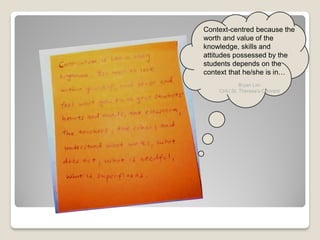 Context-centred because the
worth and value of the
knowledge, skills and
attitudes possessed by the
students depends on the
context that he/she is in…
Bryan Lim
CHIJ St. Theresa's Convent
Curriculum is like a
You need to look
within yourself, and sense and
feel what goes on in your students'
hearts and minds, the classroom,
the teachers, the school and
understand what works, what
does not, what is needful,
what is superfluous.